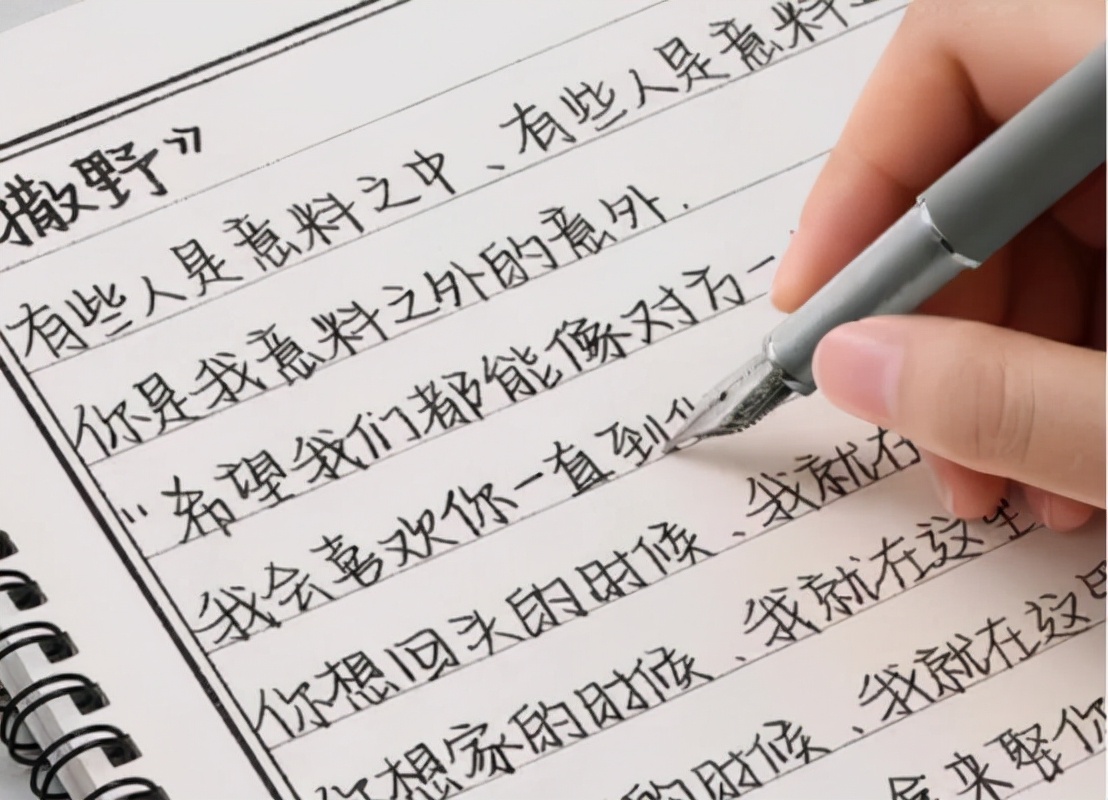 撒野》
有些人是意料之中、有些人是意料
你是我意料之外的意外.
"希望我们都能像对方一
我会喜欢你一直到
你想回头的时候、我就在
你想家的时候、我就在这里
的时候、我就在这
会来娶你